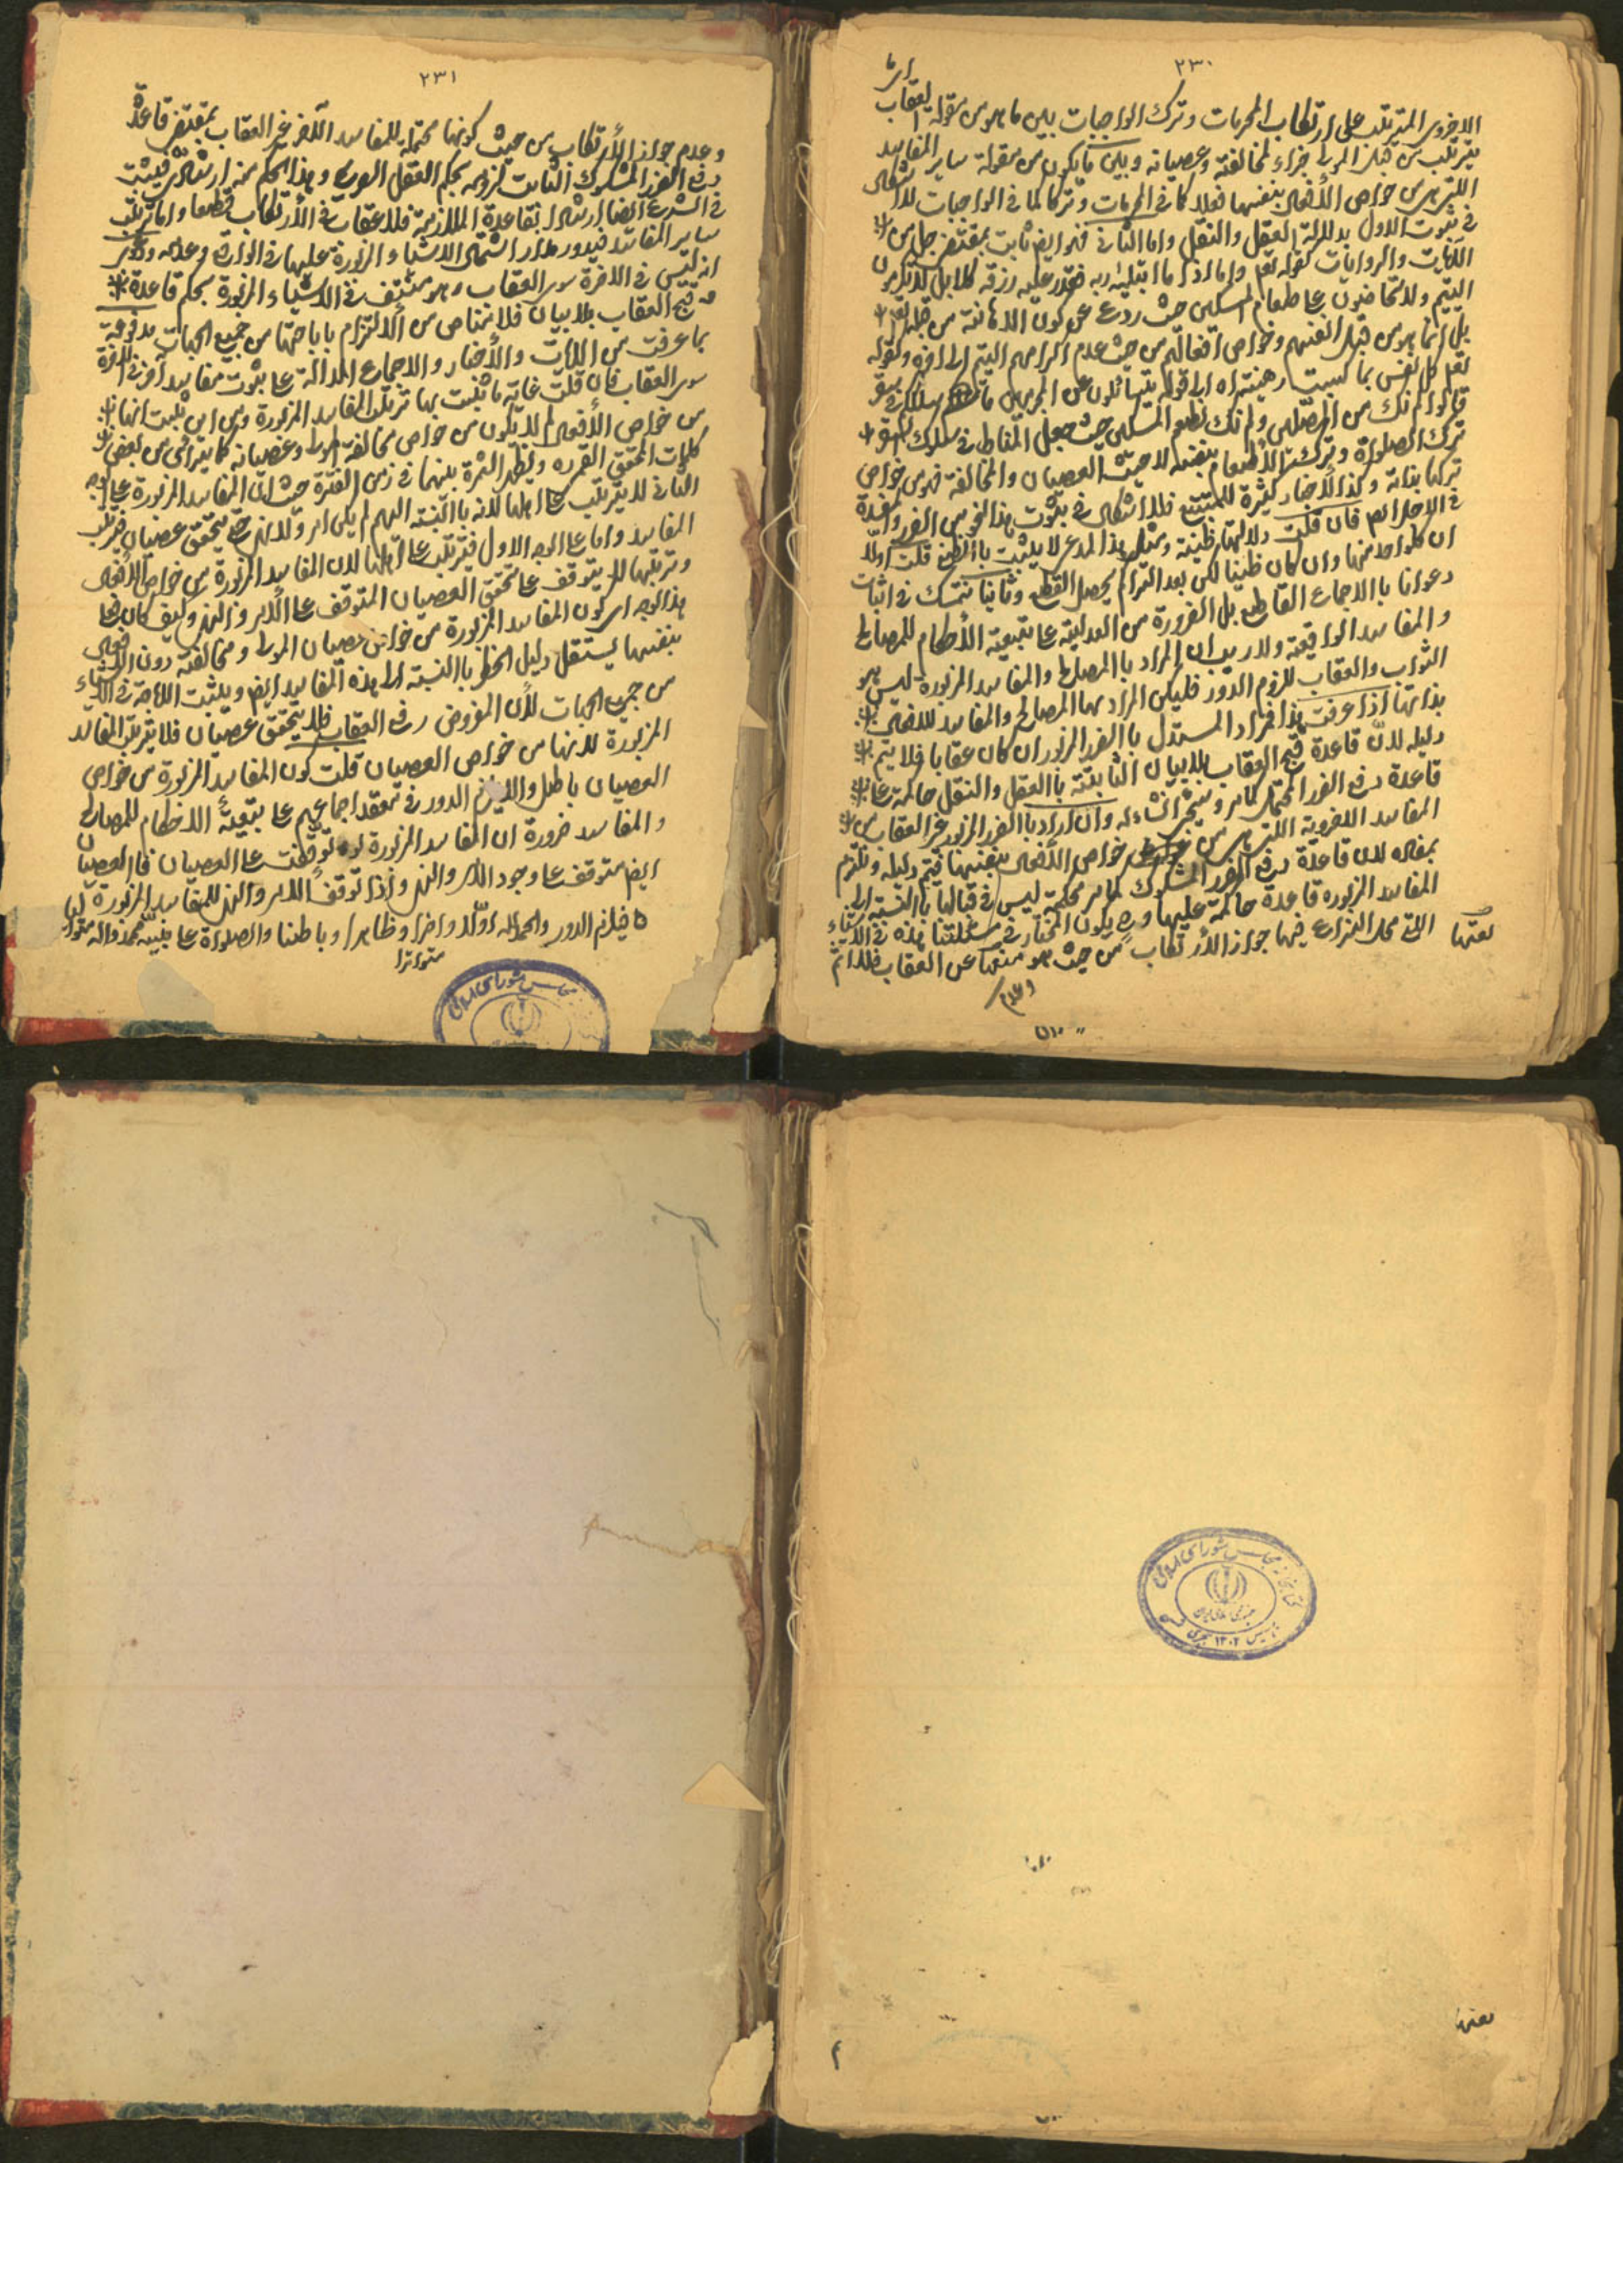 ٢٣٠
الاخروى المترتب على ارتكاب المحرمات وترك الواجبات بين ما هو من مقولة العقاب
يترتب من جزاء لمخالفته وعصيانه وبين ما يكون من مقولة ساير المفاسد
اللتى هى من خواص الأفعال بنفسها فعلا كما فى المحرمات وتركا كما فى الواجبات لا اشكال
فى ثبوت الاول بدلالة العقل والنقل واما الثانى فهو ايض ثابت بمقتضى جل من
الآيات والروايات كقوله تعم واما اذا ما ابتليه ربه فقدر عليه رزقه كلا بل لا تكرمون
اليتيم ولا تحاضون على طعام المسكين حيث ردع عن كون الاهانة من قبله تعم
بل انما هو من قبل انفسهم وخواص افعالهم من حيث عدم اكرامهم اليتيم الى اخره وكقوله
تعم كل نفس بما كسبت رهينة الى قوله يتسائلون عن المجرمين ما سلككم فى سقر
قالوا لم نك من المصلين ولم نك نطعم المسكين حيث جعل المناط فى سلوك سقر
ترك الصلوة وترك الأطعام بنفسه لا حيث العصيان والمخالفة فهو من خواص
تركها بذاته وكذا الأخبار كثيرة للمتتبع فلا اشكال فى ثبوت هذا النحو من الضرر والمفسدة
فان قلت دلالتها ظنية ومثل هذا المدعى لا يثبت بالظن قلت اولا
ان كلواحد منها وان كان ظنيا لكن بعد التراكم يحصل القطع وثانيا نتمسك فى اثبات
دعوانا بالاجماع القاطع بل الضرورة من العدلية على تبعية الأحكام للمصالح
والمفاسد الواقعية ولا ريب ان المراد بالمصالح والمفاسد المزبورة ليس هو
الثواب والعقاب للزوم الدور فليكن المراد بها المصالح والمفاسد للافعال
بذاتها اذا عرفت هذا فمراد المستدل بالضرر المزبور ان كان عقابا فلا يتم
دليله لانّ قاعدة قبح العقاب بلا بيان الثابتة بالعقل والنقل حاكمة على
قاعدة دفع الضرر المحتمل كما مر وسيجى انشاء الله وان اراد بالضرر المزبور غير العقاب من
المفاسد الاخروية اللتى هى من خواص الأفعال بنفسها فيتم دليله ونلتزم
بمفاده لان قاعدة دفع الضرر المشكوك كما مر محكمة ليس فى قبالها بالنسبة الى
المفاسد المزبورة قاعدة حاكمة عليها وح يكون المختار فى مسئلتنا هذه فى الاشياء
التى محل النزاع فيها جواز الأرتكاب من حيث هو منعها عن العقاب فلا اثم
وعدم
٢٣١
وعدم جواز الأرتكاب من حيث كونها محتملة للمفاسد الآخر غير العقاب بمقتضى قاعدة
دفع الضرر المشكوك الثابت لزومه بحكم العقل وهذا الحكم منه ارشادى فيثبت
فى الشرع ايضا ارشادا بقاعدة الملازمة فلا عقاب فى الأرتكاب قطعا واما ترتب
ساير المفاسد فيدور مدار اشتمال الاشياء المزبورة عليها فى الواقع وعدمه
انه ليس فى الاخرة سوى العقاب وهو منتف فى الاشياء المزبورة بحكم قاعدة
قبح العقاب بلا بيان فلا مناص من الالتزام باباحتها من جميع الجهات مدفوعة
بما عرفت من الآيات والأخبار والاجماع الدالة على ثبوت مفاسد اخر فى الاخرة
سوى العقاب فان قلت غاية ما يثبت بها ترتب المفاسد المزبورة ومن اين يثبت انها
من خواص الأفعال لم لا يكون من خواص مخالفة المولى وعصيانه كما يترائى من بعض
كلمات المحقق القمى ره وتظهر الثمرة بينهما فى زمن الفترة حيث ان المفاسد المزبورة على الوجه
الثانى لا يترتب على اهلها لانه بالنسبة اليهم لم يكن امر ولا نهى حتى يتحقق عصيان فيترتب
المفاسد واما على الوجه الاول فيترتب على اهلها لان المفاسد المزبورة من خواص الأفعال
وترتبها لا يتوقف على تحقق العصيان المتوقف على الأمر والنهى وكيف كان فعلى
هذا الوجه اى كون المفاسد المزبورة من خواص عصيان المولى ومخالفته دون الأفعال
بنفسها يستقل دليل الحظر بالنسبة الى هذه المفاسد ايض ويثبت الاباحة فى الاشياء
من جميع الجهات لأن المفروض رفع العقاب فلا يتحقق عصيان فلا يترتب المفاسد
المزبورة لانها من خواص العصيان قلت كون المفاسد المزبورة من خواص
العصيان باطل والا لزم الدور فى معقد اجماعهم على تبعيّة الاحكام للمصالح
والمفاسد ضرورة ان المفاسد المزبورة لو توقفت على العصيان فالعصيان
ايض متوقف على وجود الأمر والنهى واذا توقف الأمر والنهى للمفاسد المزبورة
فيلزم الدور والحمد لله اوّلا واخرا وظاهرا وباطنا والصلواة على نبيّه محمد واله
متواترا